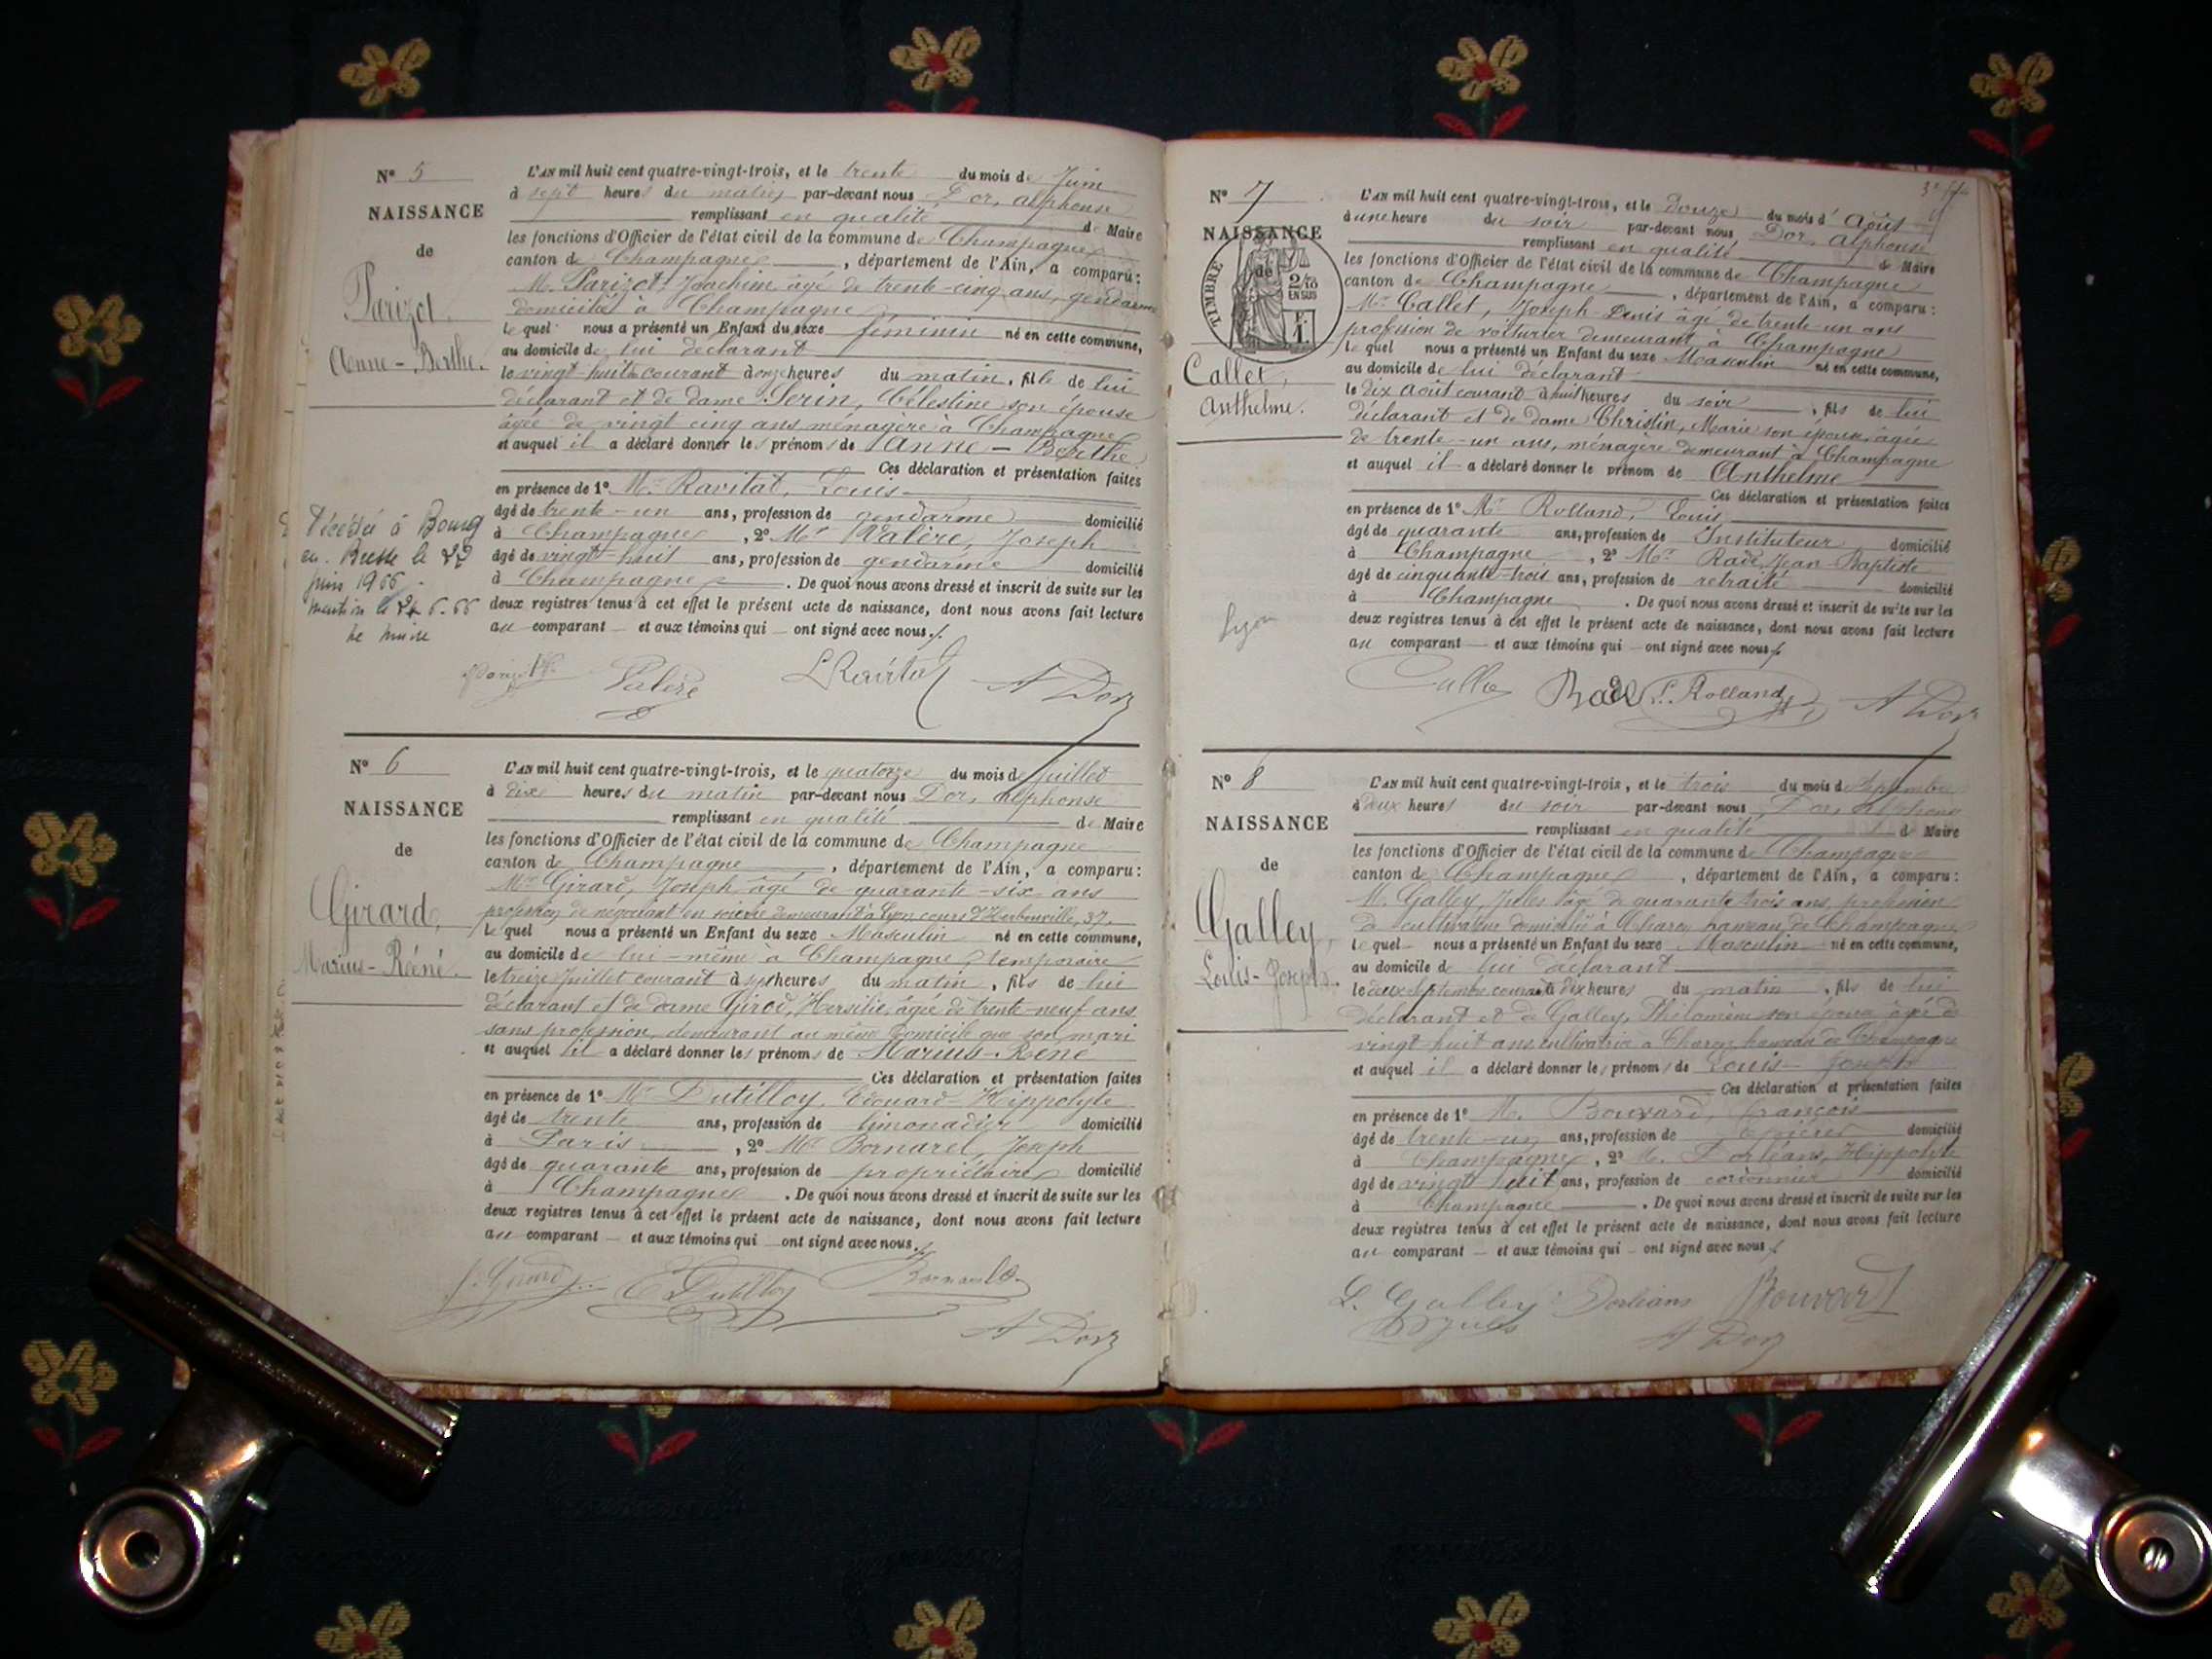 Nº 5
NAISSANCE
de
Parizot
Anne-Berthe.
L'AN mil huit cent quatre-vingt-trois, et le trente du mois de Juin
à sept heures du matin par-devant nous Dor, alphonse
remplissant en qualité de Maire
les fonctions d'Officier de l'état civil de la commune de Champagne
canton de Champagne, département de l'Ain, a comparu:
M. Parizot Joachim âgé de trente-cinq ans, gendarme
domicilié à Champagne
lequel nous a présenté un Enfant du sexe féminin né en cette commune,
au domicile de lui déclarant
le vingt huit courant à onze heures du matin, fille de lui
déclarant et de dame Serin, Célestine son épouse
âgée de vingt cinq ans ménagère à Champagne
et auquel il a déclaré donner les prénoms de Anne-Berthe
Ces déclaration et présentation faites
en présence de 1º Mr Ravitat, Louis
âgé de trente-un ans, profession de gendarme domicilié
à Champagne, 2º Mr Valère, Joseph
âgé de vingt-huit ans, profession de gendarme domicilié
à Champagne. De quoi nous avons dressé et inscrit de suite sur les
deux registres tenus à cet effet le présent acte de naissance, dont nous avons fait lecture
au comparant et aux témoins qui ont signé avec nous.
Décédée à Bourg
en Bresse le 22
juin 1966.
mention le 6.66
Le maire
Valère L Ravitat A Dor
Nº 6
NAISSANCE
de
Girard,
Marius-Réné.
L'AN mil huit cent quatre-vingt-trois, et le quatorze du mois de Juillet
à dix heures du matin par-devant nous Dor, alphonse
remplissant en qualité de Maire
les fonctions d'Officier de l'état civil de la commune de Champagne
canton de Champagne, département de l'Ain, a comparu:
Mr Girard, Joseph âgé de quarante-six ans
profession de négociant en soierie demeurant à Lyon cours d'Herbouville, 37.
lequel nous a présenté un Enfant du sexe Masculin né en cette commune,
au domicile de lui-même à Champagne, temporaire
le treize Juillet courant à sept heures du matin, fils de lui
déclarant et de dame Girod, Hersilie âgée de trente-neuf ans
sans profession, demeurant au même domicile que son mari
et auquel il a déclaré donner les prénoms de Marius-Réné
Ces déclaration et présentation faites
en présence de 1º Mr Dutilloy, Edouard-Hippolyte
âgé de trente ans, profession de limonadier domicilié
à Paris, 2º Mr Bornarel, Joseph
âgé de quarante ans, profession de propriétaire domicilié
à Champagne. De quoi nous avons dressé et inscrit de suite sur les
deux registres tenus à cet effet le présent acte de naissance, dont nous avons fait lecture
au comparant et aux témoins qui ont signé avec nous.
J. Girard E Dutilloy Bornarel
A Dor
Nº 7
NAISSANCE
de
TIMBRE
2/10
EN SUS
F.
1.
Callet,
Anthelme.
L'AN mil huit cent quatre-vingt-trois, et le douze du mois d'Août
à une heure du soir par-devant nous Dor, Alphonse
remplissant en qualité de Maire
les fonctions d'Officier de l'état civil de la commune de Champagne
canton de Champagne, département de l'Ain, a comparu:
Mr Callet, Joseph-Denis âgé de trente-un ans
profession de voiturier demeurant à Champagne
lequel nous a présenté un Enfant du sexe Masculin né en cette commune,
au domicile de lui déclarant
le dix Août courant à huit heures du soir, fils de lui
déclarant et de dame Christin, Marie son épouse âgée
de trente-un ans, ménagère demeurant à Champagne
et auquel il a déclaré donner le prénom de Anthelme
Ces déclaration et présentation faites
en présence de 1º Mr Rolland, Louis
âgé de quarante ans, profession de Instituteur domicilié
à Champagne, 2º Mr Radé, Jean-Baptiste
âgé de cinquante-trois ans, profession de retraité domicilié
à Champagne. De quoi nous avons dressé et inscrit de suite sur les
deux registres tenus à cet effet le présent acte de naissance, dont nous avons fait lecture
au comparant et aux témoins qui ont signé avec nous
Lyon
Callet L. Rolland A Dor
Nº 8
NAISSANCE
de
Galley,
Louis-Joseph.
L'AN mil huit cent quatre-vingt-trois, et le trois du mois de Septembre
à deux heures du soir par-devant nous Dor, alphonse
remplissant en qualité de Maire
les fonctions d'Officier de l'état civil de la commune de Champagne
canton de Champagne, département de l'Ain, a comparu:
M. Galley, Jules âgé de quarante trois ans, profession
de cultivateur domicilié à hameau de Champagne
lequel nous a présenté un Enfant du sexe Masculin né en cette commune,
au domicile de lui déclarant
le deux Septembre courant à dix heures du matin, fils de lui
déclarant et de Galley, Philomène son épouse âgée de
vingt-huit ans cultivatrice à hameau de Champagne
et auquel il a déclaré donner les prénoms de Louis-Joseph
Ces déclaration et présentation faites
en présence de 1º M. Bouvard, François
âgé de trente-un ans, profession de domicilié
à Champagne, 2º M. Dorléans, Hippolyte
âgé de vingt huit ans, profession de cordonnier domicilié
à Champagne. De quoi nous avons dressé et inscrit de suite sur les
deux registres tenus à cet effet le présent acte de naissance, dont nous avons fait lecture
au comparant et aux témoins qui ont signé avec nous
Galley Dorléans Bouvard
Jules A Dor